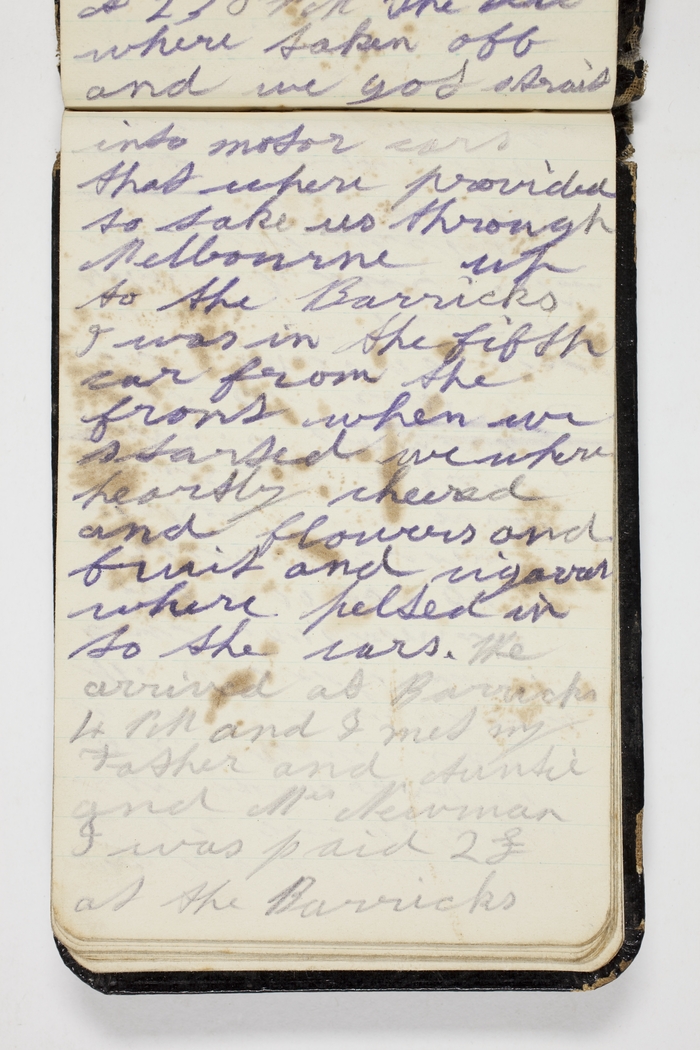 where taken off
and we got strait
into motor cars
that where provided
to take us through
Melbourne up
to the Barricks
I was in the fifth
car from the
front when we
started we where
heartly cheered
and flowers and
fruit and cigavars
where pelted in
to the cars. We
arrived at Barricks
4 PM and I met my
Father and Auntie
and Mrs Newman
I was paid 2£
at the Barricks